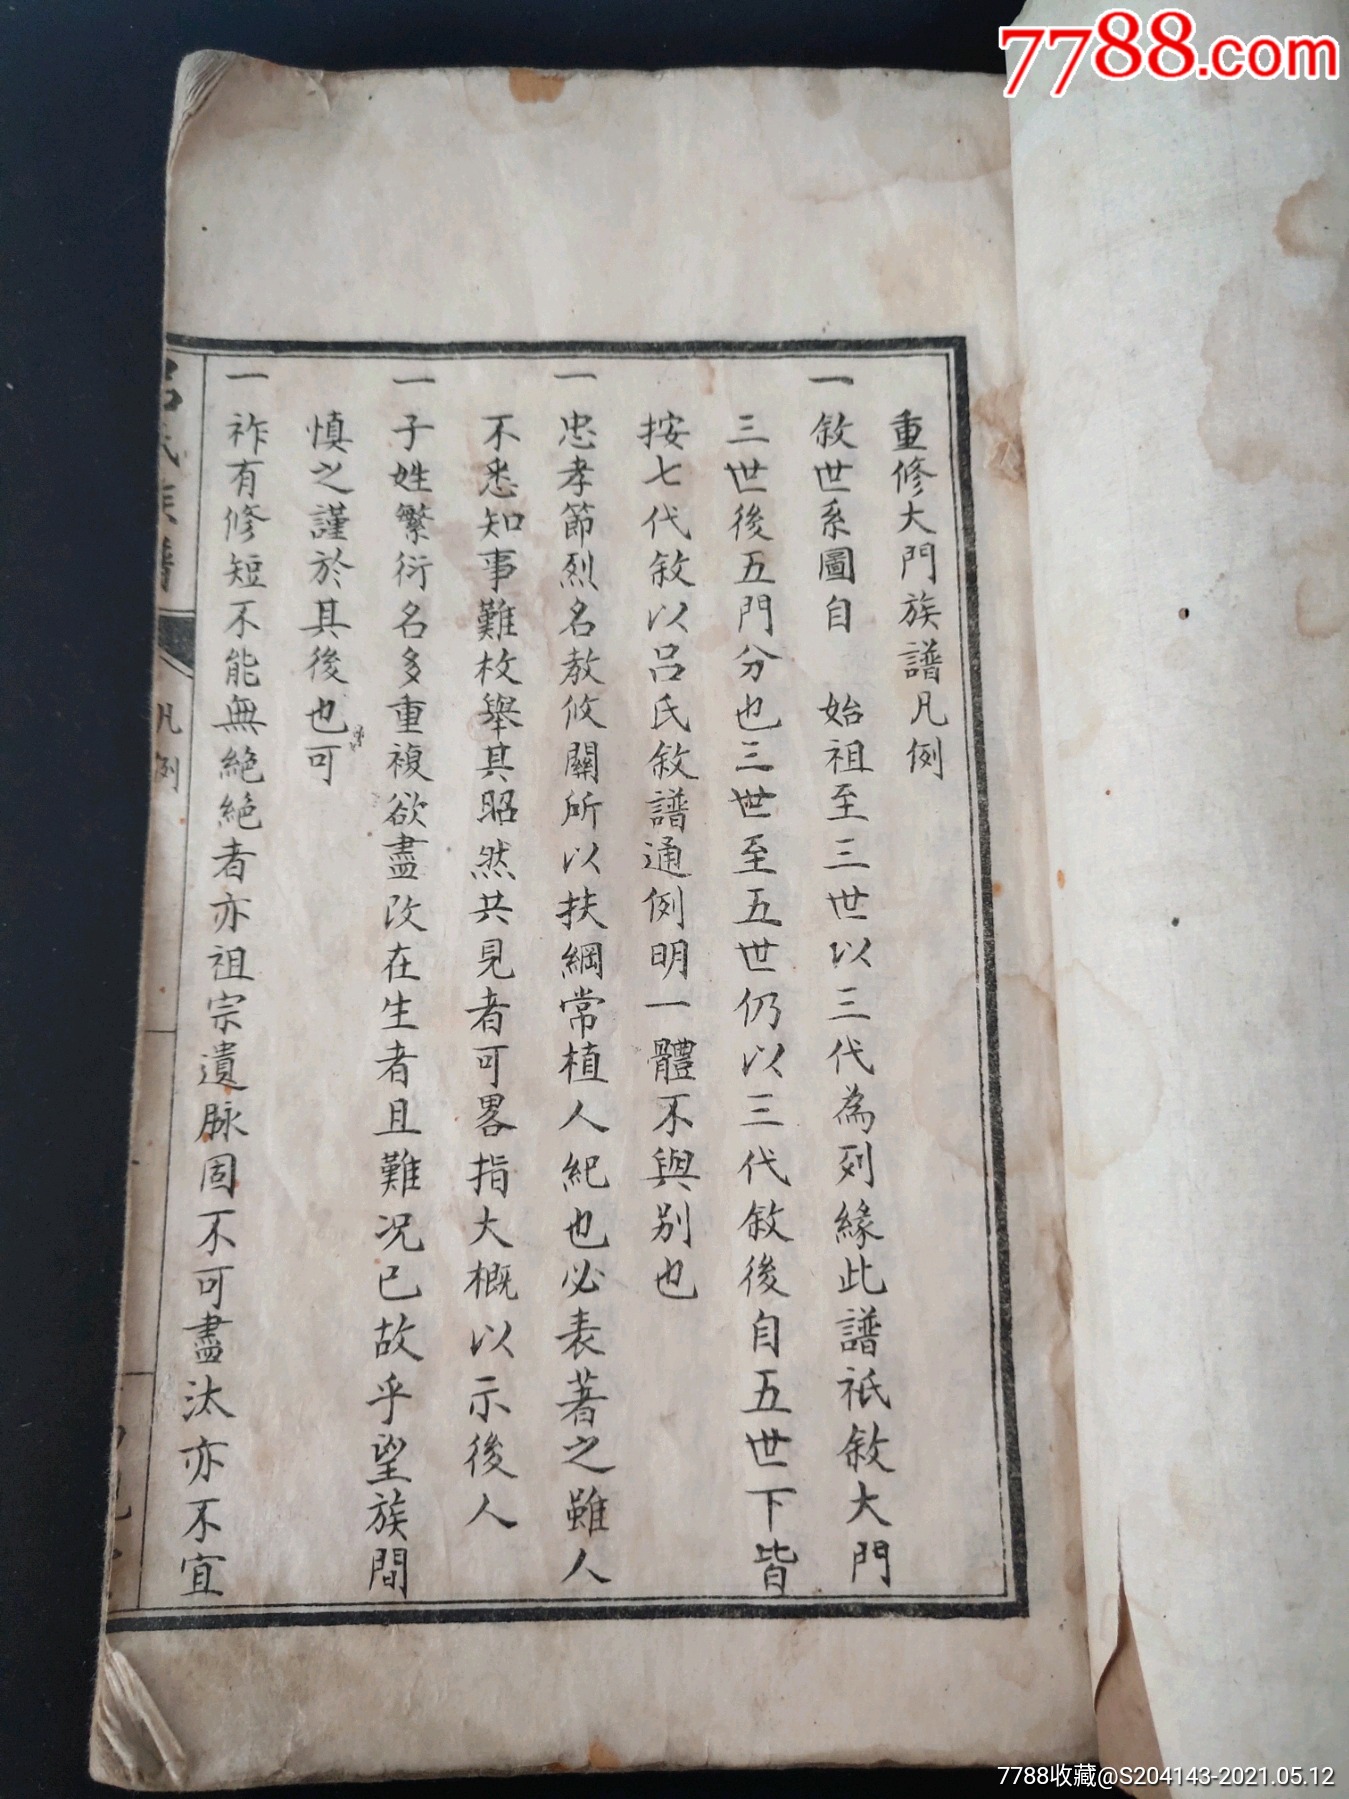 7788.com
重修大門族譜凡例
一敘世系圖自 始祖至三世以三代為列緣此譜祇敘大門
三世後五門分也三世至五世仍以三代敘後自五世下皆
按七代敘以呂氏敘譜通例明一體不與別也
一忠孝節烈名教攸關所以扶綱常植人紀也必表著之雖人
不悉知事難枚舉其昭然共見者可畧指大概以示後人
一子姓繁衍名多重複欲盡改在生者且難况已故乎望族間
慎之謹於其後也可
一祚有修短不能無絕絕者亦祖宗遺脉固不可盡汰亦不宜
呂氏族譜
凡例
7788收藏@S204143-2021.05.12